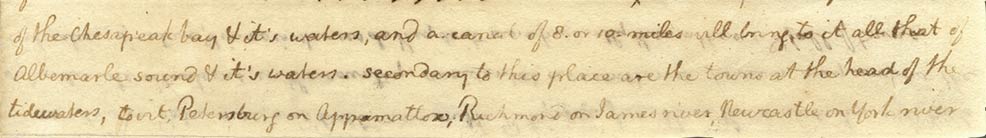 of the Chesapeak bay & it's waters, and a canal of 8. or 10. miles will bring to it all that of
Albemarle sound & it's waters. secondary to this place are the towns at the head of the
tidewaters, to wit, Petersburg on Appamattox, Richmond on James river, Newcastle on York river